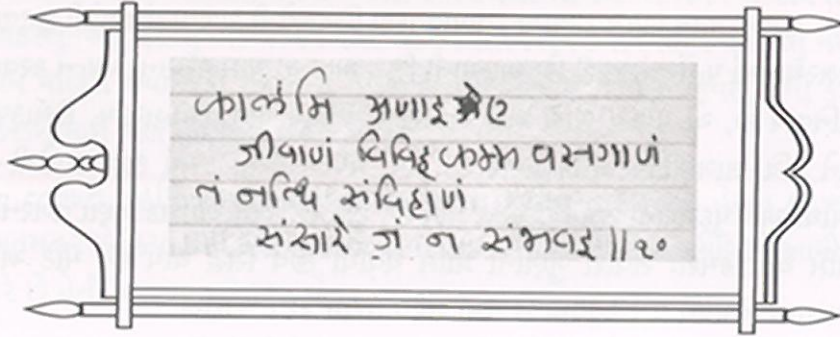 कालंमि अणाइए
जीवाणं विविह कम्म वसगाणं
तं नत्थि संविहाणं
संसारे जं न संभवइ॥१०